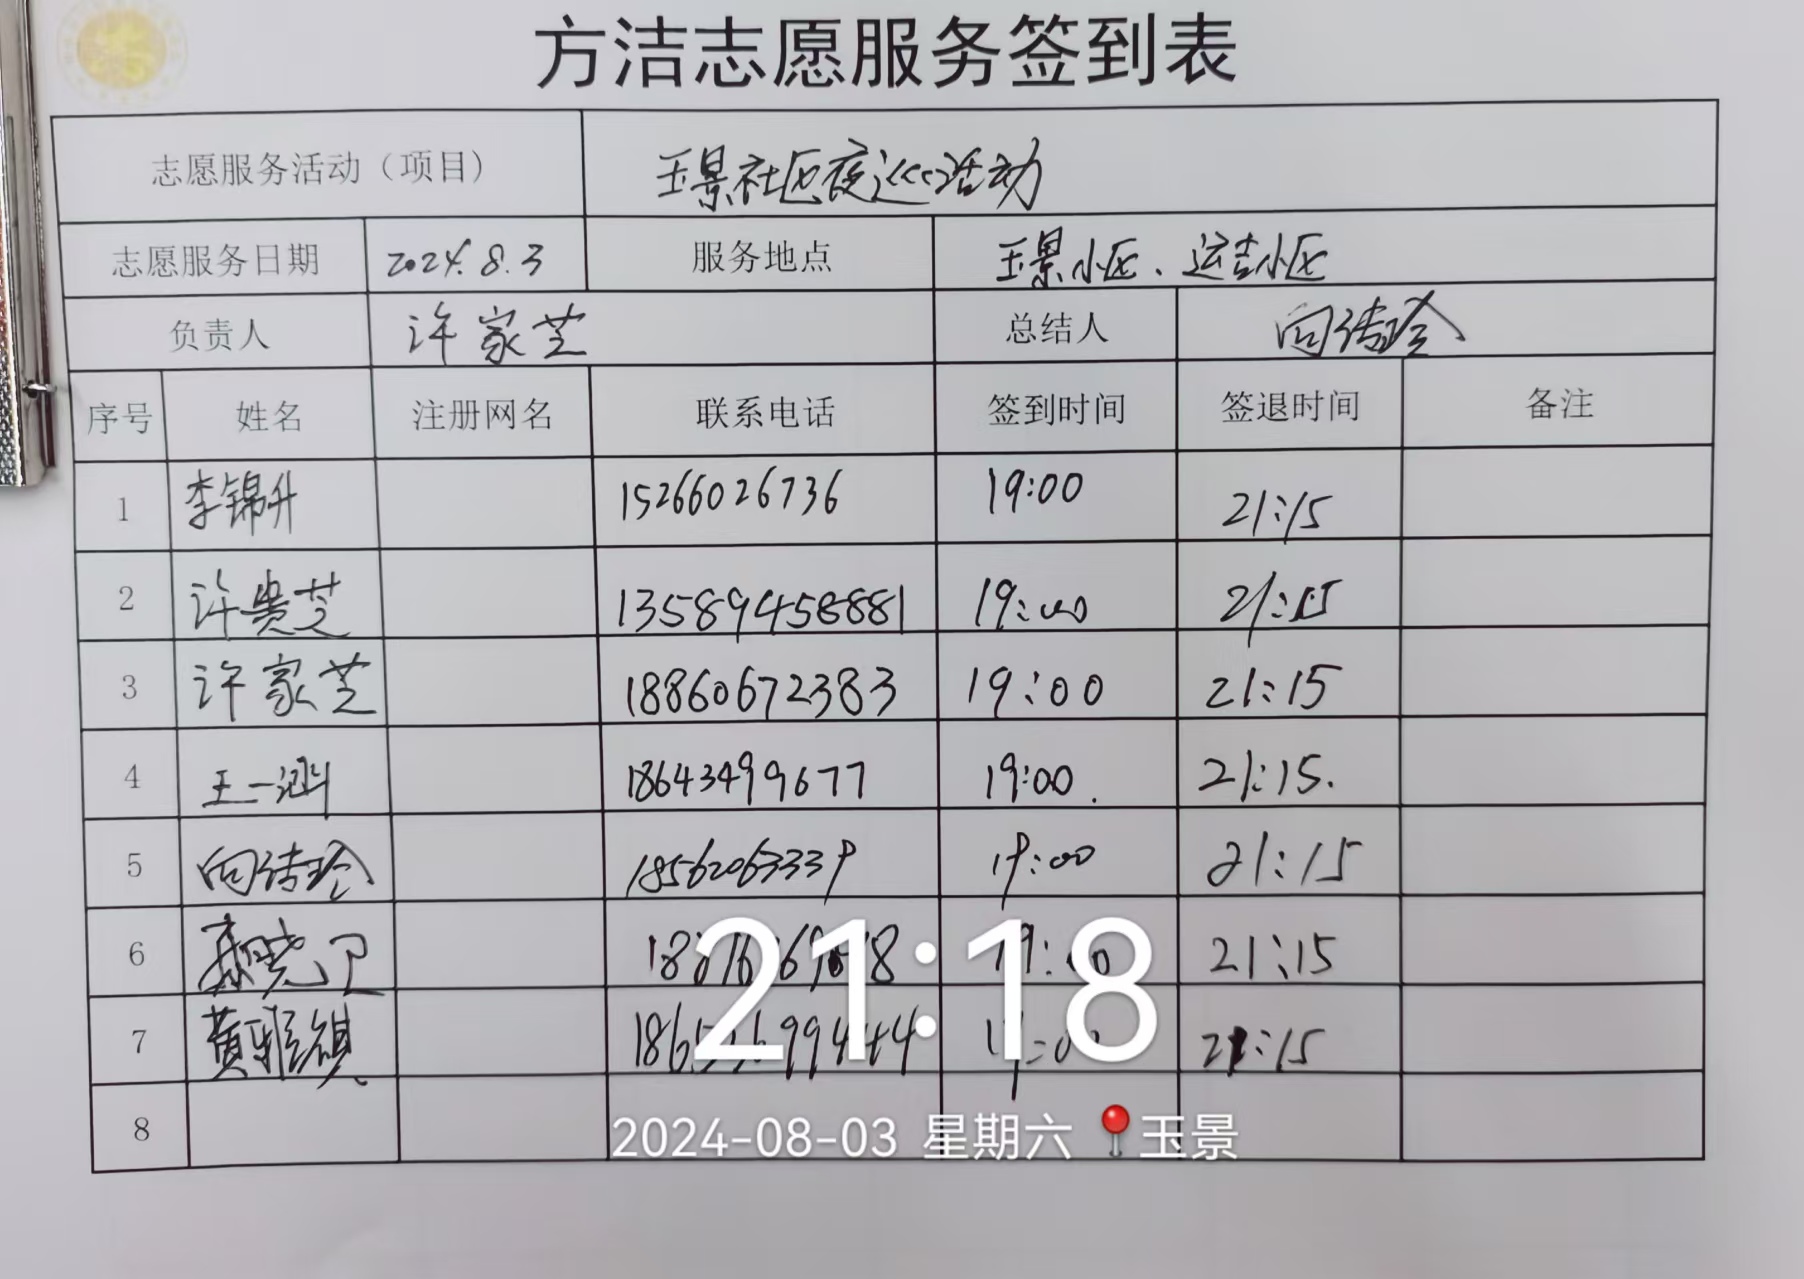 方洁志愿服务签到表
志愿服务活动（项目） 玉景社区夜巡活动
志愿服务日期 2024.8.3 服务地点 玉景小区、运吉小区
负责人 许家芝 总结人 向结玲
序号 姓名 注册网名 联系电话 签到时间 签退时间 备注
1 李锦升 15266026736 19:00 21:15
2 许贵芝 13589458881 19:00 21:15
3 许家芝 18860672383 19:00 21:15
4 王一涵 18643499677 19:00. 21:15.
5 向结玲 18562063339 19:00 21:15
6 19:00 21:15
7 黄雅祺 19:00 21:15
8
21:18
2024-08-03 星期六 玉景